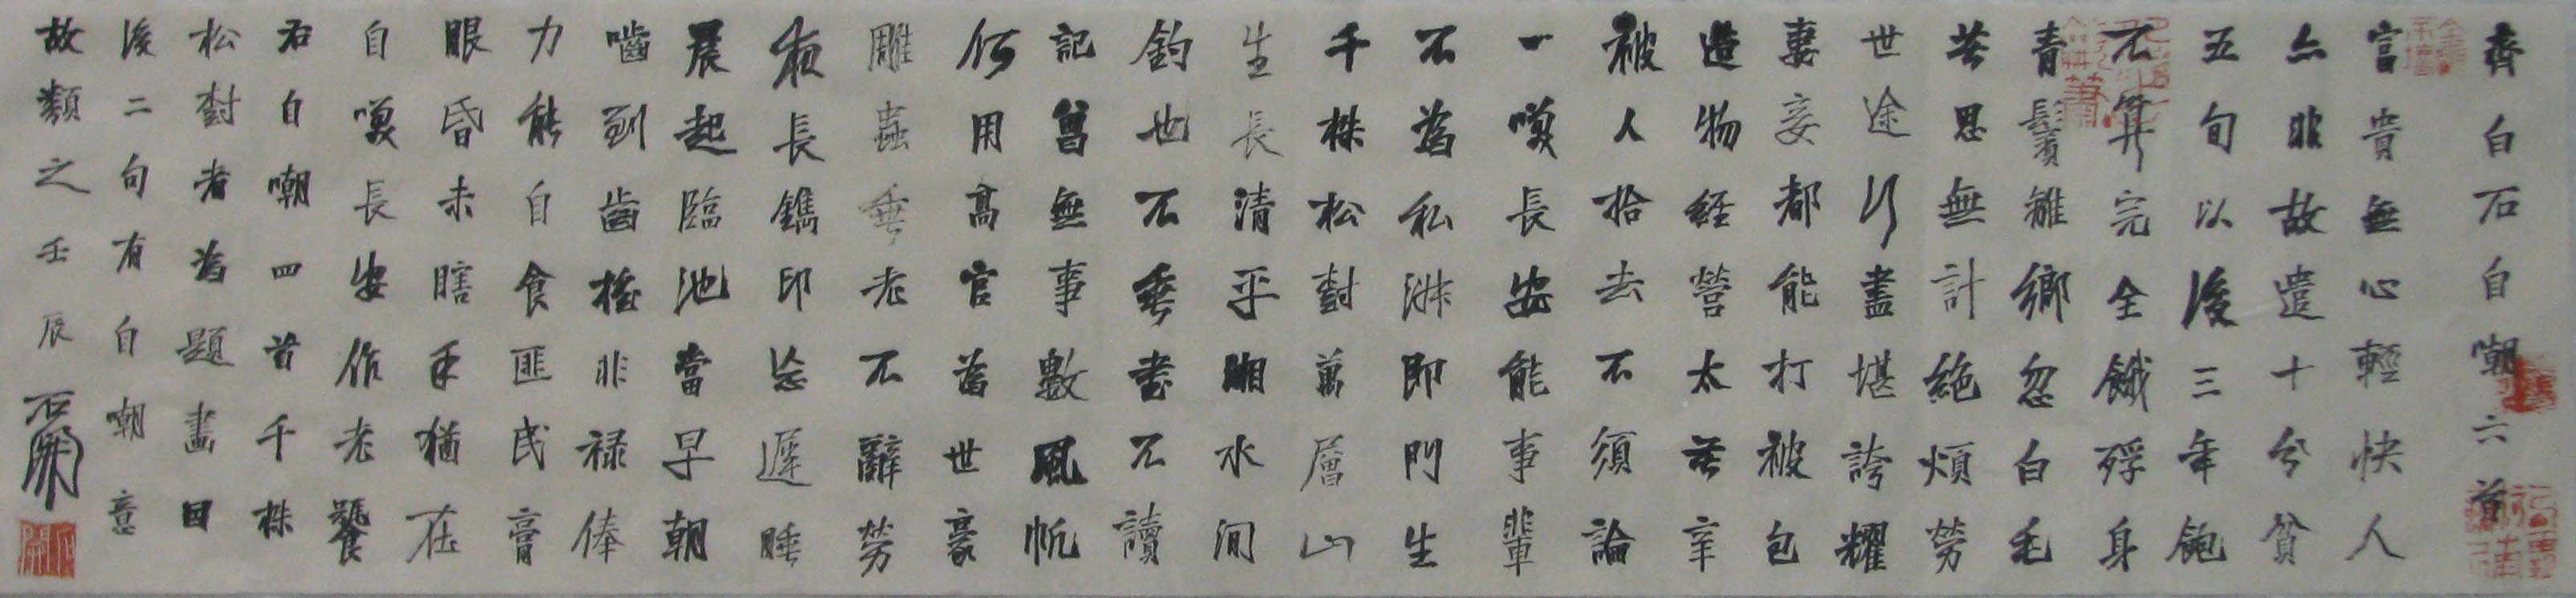 齊白石自嘲六首
富貴無心輕快人
亦非故遣十分貧
五旬以後三年飽
不算完全餓殍身
青鬢離鄉忽白毛
苦思無計絕煩勞
世途行盡堪誇耀
妻妾都能打被包
造物經營太苦辛
被人拾去不須論
一嘆長安能事輩
不為私淑即門生
千株松對萬層山
生長清平湘水間
釣也不垂書不讀
記曾無事數風帆
何用高官為世豪
雕蟲垂老不辭勞
夜長鐫印忘遲睡
晨起臨池當早朝
嚙到齒搖非祿俸
力能自食匪民膏
眼昏未瞎手猶在
自嘆長安作老饕
右自嘲四首千株
松對者為題畫因
後二句有自嘲意
故類之壬辰石開